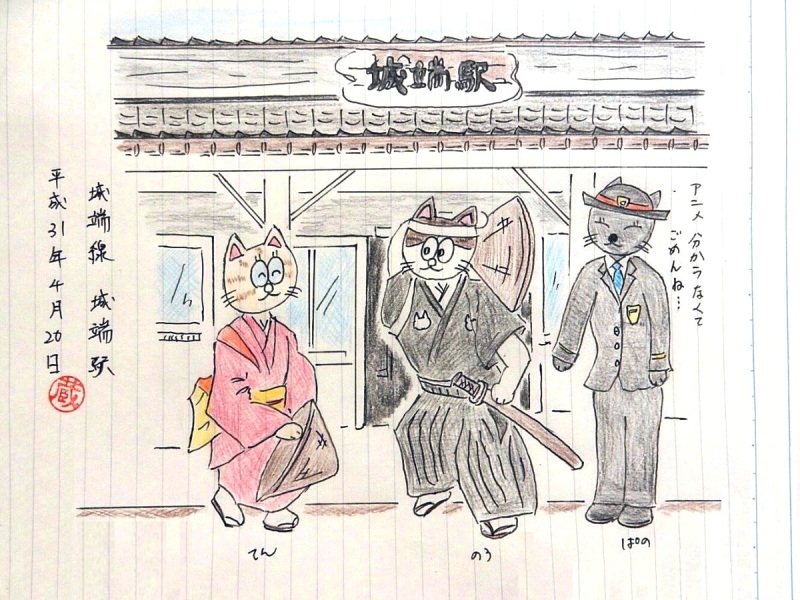 城端駅
アニメ 分かラなくて
ごめんね…
城端線 城端駅
平成31年4月20日
蔵
てん
のう
ぱの